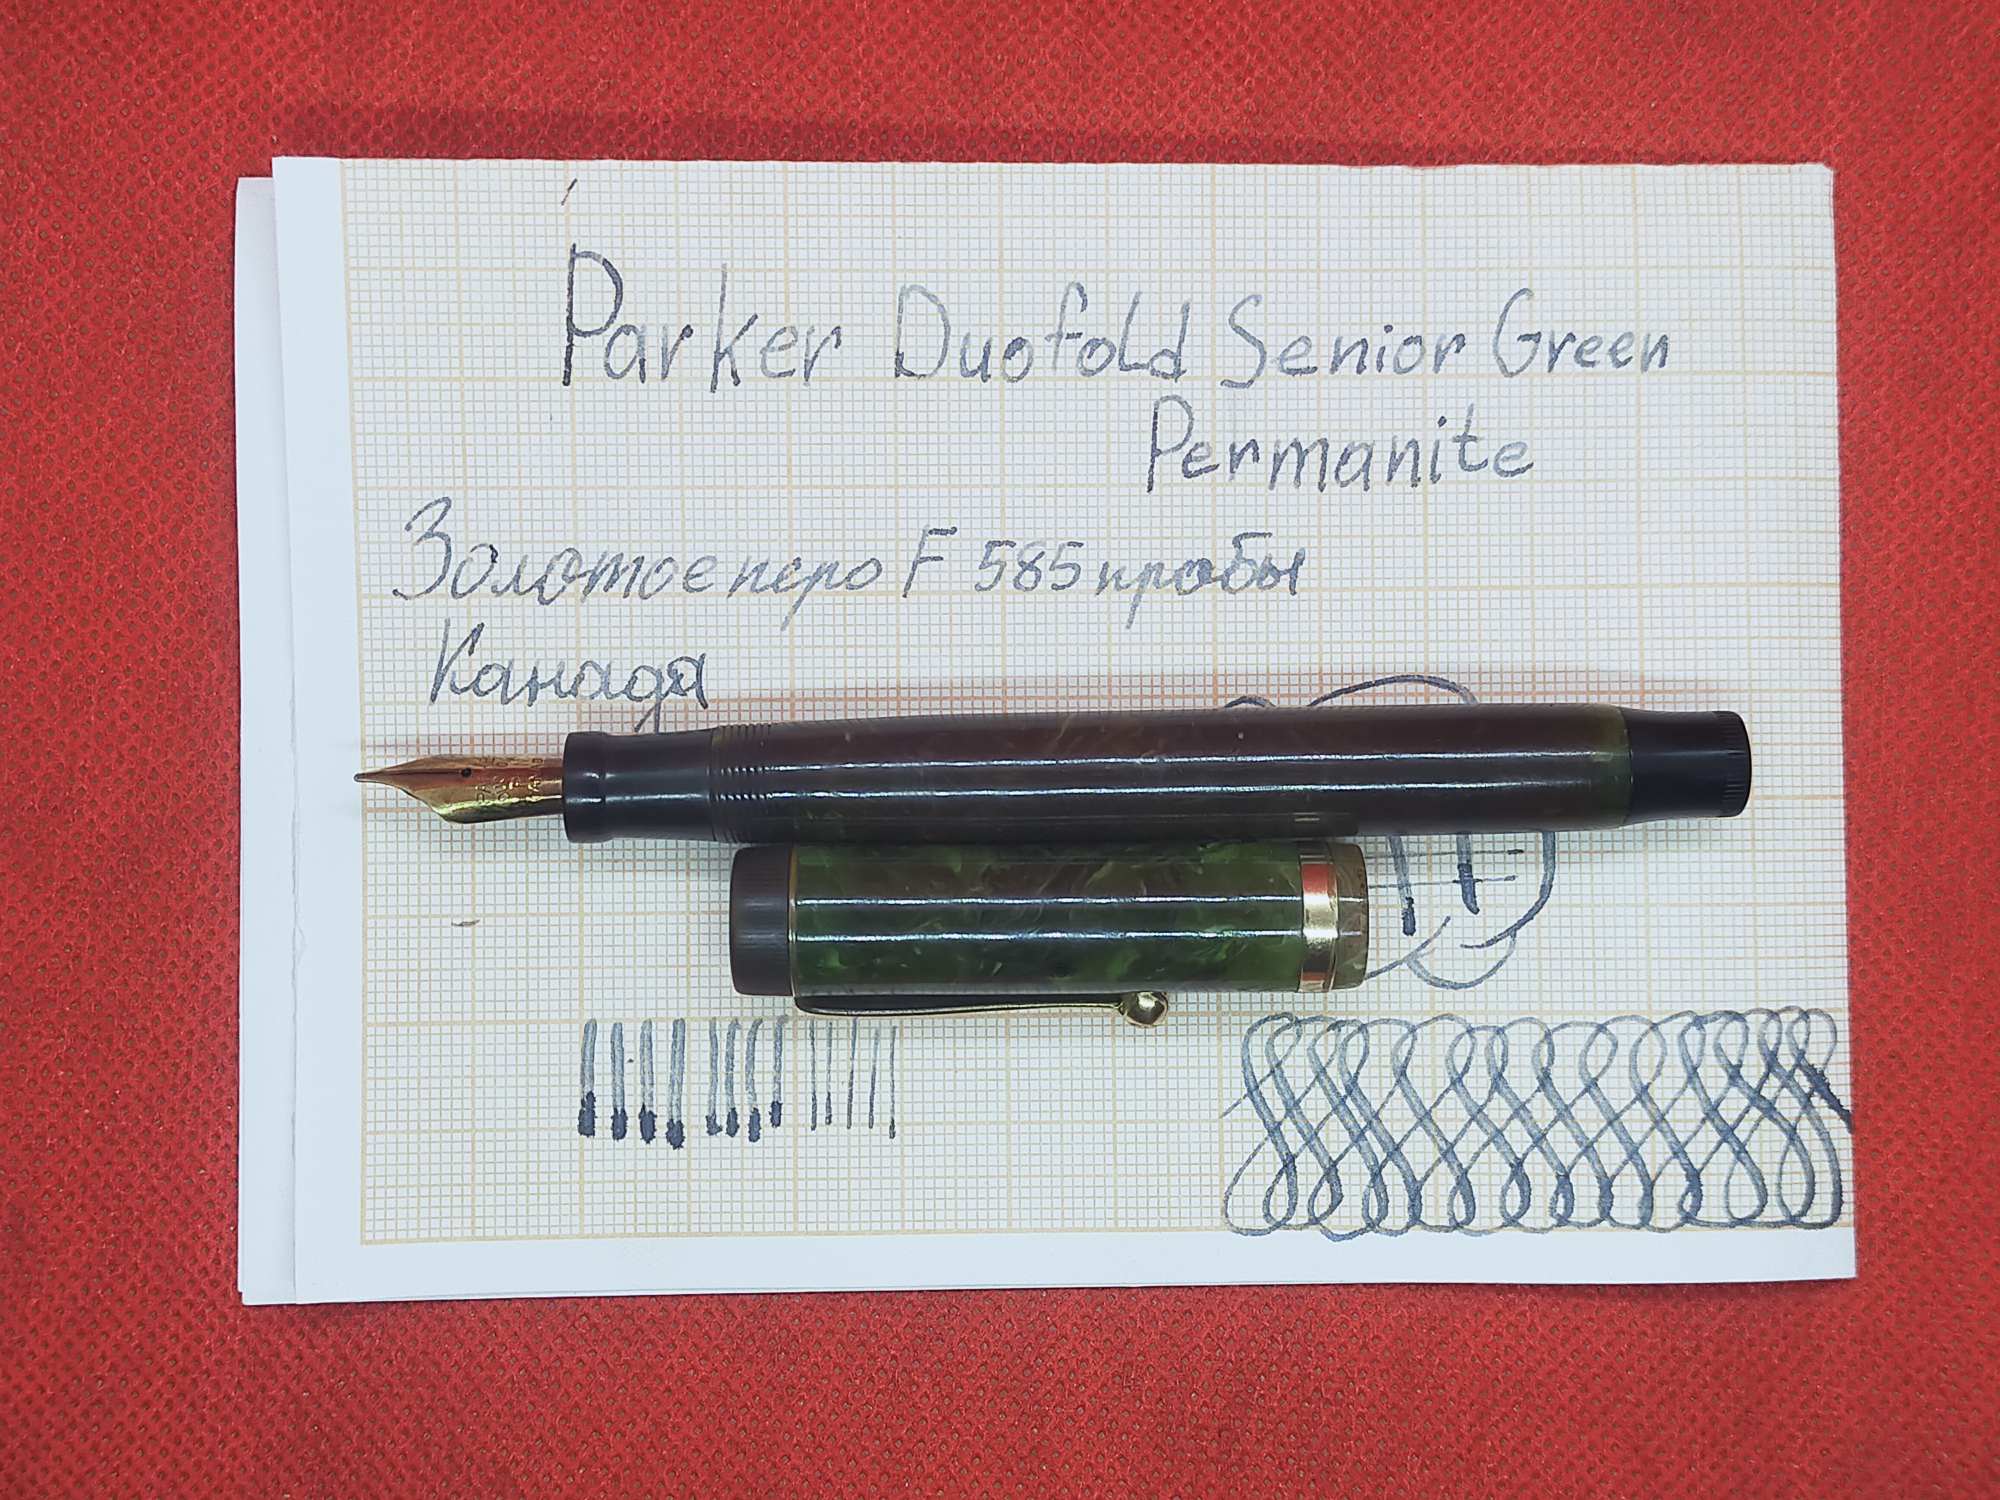 Parker Duofold Senior Green
Permanite
Золотое перо F 585 пробы
Канада